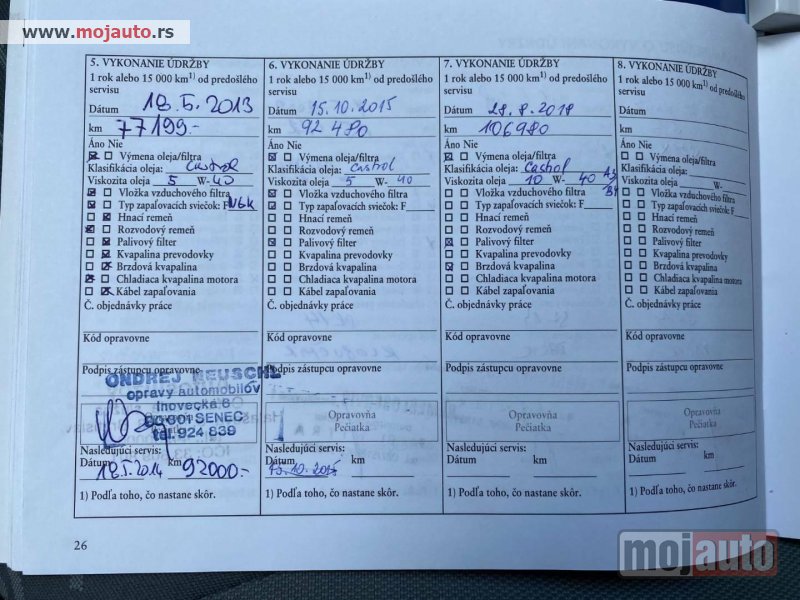 www.mojauto.rs
5. VYKONANIE ÚDRŽBY
1 rok alebo 15 000 km1) od predošlého
servisu
Dátum 18.5.2013
km 77199.-
Áno Nie
Výmena oleja/filtra
Klasifikácia oleja: Castrol
Viskozita oleja 5 W-40
Vložka vzduchového filtra
Typ zapaľovacích sviečok: F NGK
Hnací remeň
Rozvodový remeň
Palivový filter
Kvapalina prevodovky
Brzdová kvapalina
Chladiaca kvapalina motora
Kábel zapaľovania
Č. objednávky práce
Kód opravovne
Podpis zástupcu opravovne
ONDREJ REUSCHL
opravy automobilov
Inovecká 6
90301 SENEC
tel. 924 839
Nasledujúci servis:
Dátum km
18.5.2014 92000.-
1) Podľa toho, čo nastane skôr.
6. VYKONANIE ÚDRŽBY
1 rok alebo 15 000 km1) od predošlého
servisu
Dátum 15.10.2015
km 92 480
Áno Nie
Výmena oleja/filtra
Klasifikácia oleja: Castrol
Viskozita oleja 5 W- 40
Vložka vzduchového filtra
Typ zapaľovacích sviečok: F
Hnací remeň
Rozvodový remeň
Palivový filter
Kvapalina prevodovky
Brzdová kvapalina
Chladiaca kvapalina motora
Kábel zapaľovania
Č. objednávky práce
Kód opravovne
Podpis zástupcu opravovne
Opravovňa
Pečiatka
Nasledujúci servis:
Dátum km
1) Podľa toho, čo nastane skôr.
7. VYKONANIE ÚDRŽBY
1 rok alebo 15 000 km1) od predošlého
servisu
Dátum 28.8.2018
km 106980
Áno Nie
Výmena oleja/filtra
Klasifikácia oleja: Castrol
Viskozita oleja 10 W- 40
Vložka vzduchového filtra
Typ zapaľovacích sviečok: F
Hnací remeň
Rozvodový remeň
Palivový filter
Kvapalina prevodovky
Brzdová kvapalina
Chladiaca kvapalina motora
Kábel zapaľovania
Č. objednávky práce
Kód opravovne
Podpis zástupcu opravovne
Opravovňa
Pečiatka
Nasledujúci servis:
Dátum km
1) Podľa toho, čo nastane skôr.
8. VYKONANIE ÚDRŽBY
1 rok alebo 15 000 km1) od predošlého
servisu
Dátum
km
Áno Nie
Výmena oleja/filtra
Klasifikácia oleja:
Viskozita oleja W-
Vložka vzduchového filtra
Typ zapaľovacích sviečok: F
Hnací remeň
Rozvodový remeň
Palivový filter
Kvapalina prevodovky
Brzdová kvapalina
Chladiaca kvapalina motora
Kábel zapaľovania
Č. objednávky práce
Kód opravovne
Podpis zástupcu opravovne
Opravovňa
Pečiatka
Nasledujúci servis:
Dátum km
1) Podľa toho, čo nastane skôr.
26
mojauto